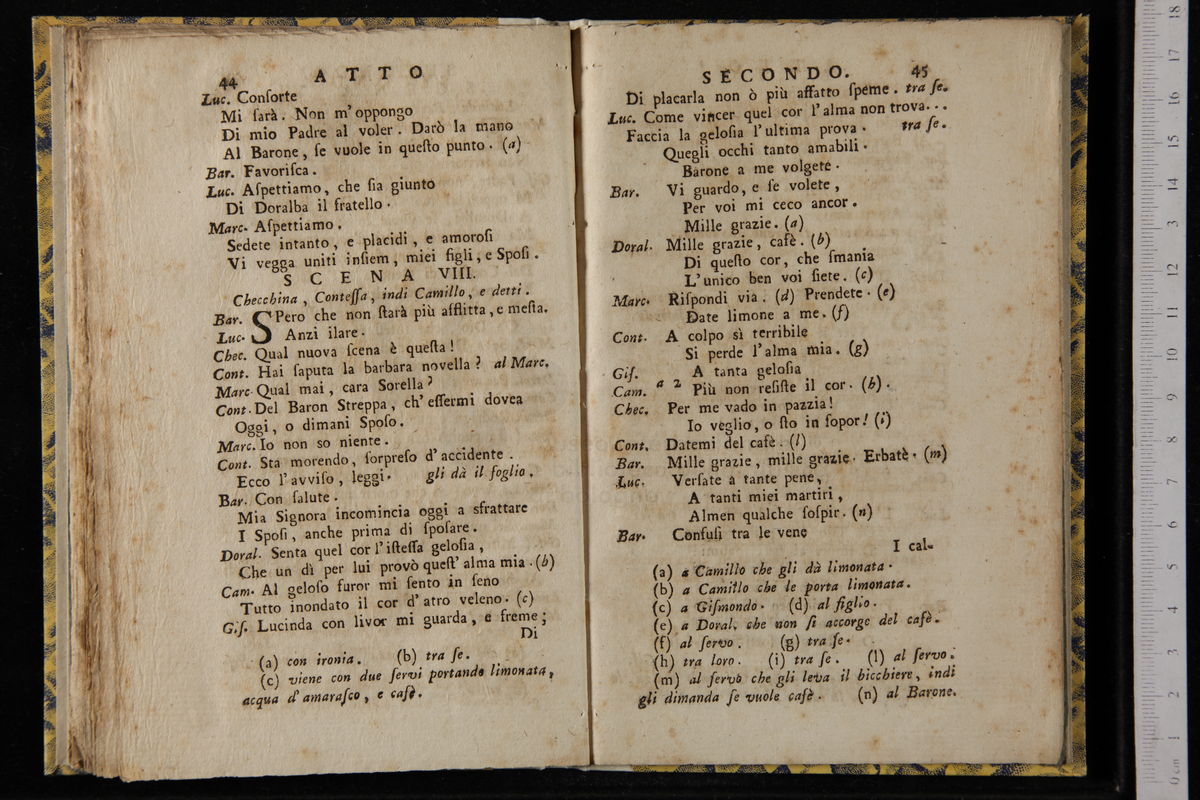 44 ATTO
Luc. Conſorte
Mi ſarà. Non m'oppongo
Di mio Padre al voler. Darò la mano
Al Barone, ſe vuole in queſto punto. (a)
Bar. Favoriſca.
Luc. Aſpettiamo, che ſia giunto
Di Doralba il fratello.
Marc. Aſpettiamo.
Sedete intanto, e placidi, e amoroſi
Vi vegga uniti inſiem, miei figli, e Spoſi.
SCENA VIII.
Checchina, Conteſſa, indi Camillo, e detti.
Bar. SPero che non ſtarà più afflitta, e meſta.
Luc. Anzi ilare.
Chec. Qual nuova ſcena è queſta!
Cont. Hai ſaputa la barbara novella? al Marc.
Marc. Qual mai, cara Sorella?
Cont. Del Baron Streppa, ch'eſſermi dovea
Oggi, o dimani Spoſo.
Marc. Io non so niente.
Cont. Sta morendo, ſorpreſo d'accidente.
Ecco l'avviſo, leggi. gli dà il foglio.
Bar. Con ſalute.
Mia Signora incomincia oggi a sfrattare
I Spoſi, anche prima di ſpoſare.
Doral. Senta quel cor l'iſteſſa geloſia,
Che un dì per lui provò queſt'alma mia. (b)
Cam. Al geloſo furor mi ſento in ſeno
Tutto inondato il cor d'atro veleno. (c)
Giſ. Lucinda con livor mi guarda, e freme;
Di
(a) con ironia. (b) tra ſe.
(c) viene con due ſervi portando limonata,
acqua d'amaraſco, e cafè.
SECONDO. 45
Di placarla non ò più affatto ſpeme. tra ſe.
Luc. Come vincer quel cor l'alma non trova...
Faccia la geloſia l'ultima prova. tra ſe.
Quegli occhi tanto amabili.
Barone a me volgete.
Bar. Vi guardo, e ſe volete,
Per voi mi ceco ancor.
Mille grazie. (a)
Doral. Mille grazie, cafè. (b)
Di queſto cor, che ſmania
L'unico ben voi ſiete. (c)
Marc. Riſpondi via. (d) Prendete. (e)
Date limone a me. (f)
Cont. A colpo sì terribile
Si perde l'alma mia. (g)
Giſ. A tanta geloſia
Cam. a 2 Più non reſiſte il cor. (h).
Chec. Per me vado in pazzia!
Io veglio, o ſto in ſopor! (i)
Cont. Datemi del cafè. (l)
Bar. Mille grazie, mille grazie. Erbatè. (m)
Luc. Verſate a tante pene,
A tanti miei martiri,
Almen qualche ſoſpir. (n)
Bar. Confuſi tra le vene
I cal-
(a) a Camillo che gli dà limonata.
(b) a Camillo che le porta limonata.
(c) a Giſmondo. (d) al figlio.
(e) a Doral. che non ſi accorge del cafè.
(f) al ſervo. (g) tra ſe.
(h) tra loro. (i) tra ſe. (l) al ſervo.
(m) al ſervo che gli leva il bicchiere, indi
gli dimanda ſe vuole cafè. (n) al Barone.
18
17
16
15
14
13
12
11
10
9
8
7
6
5
4
3
2
1
0 cm